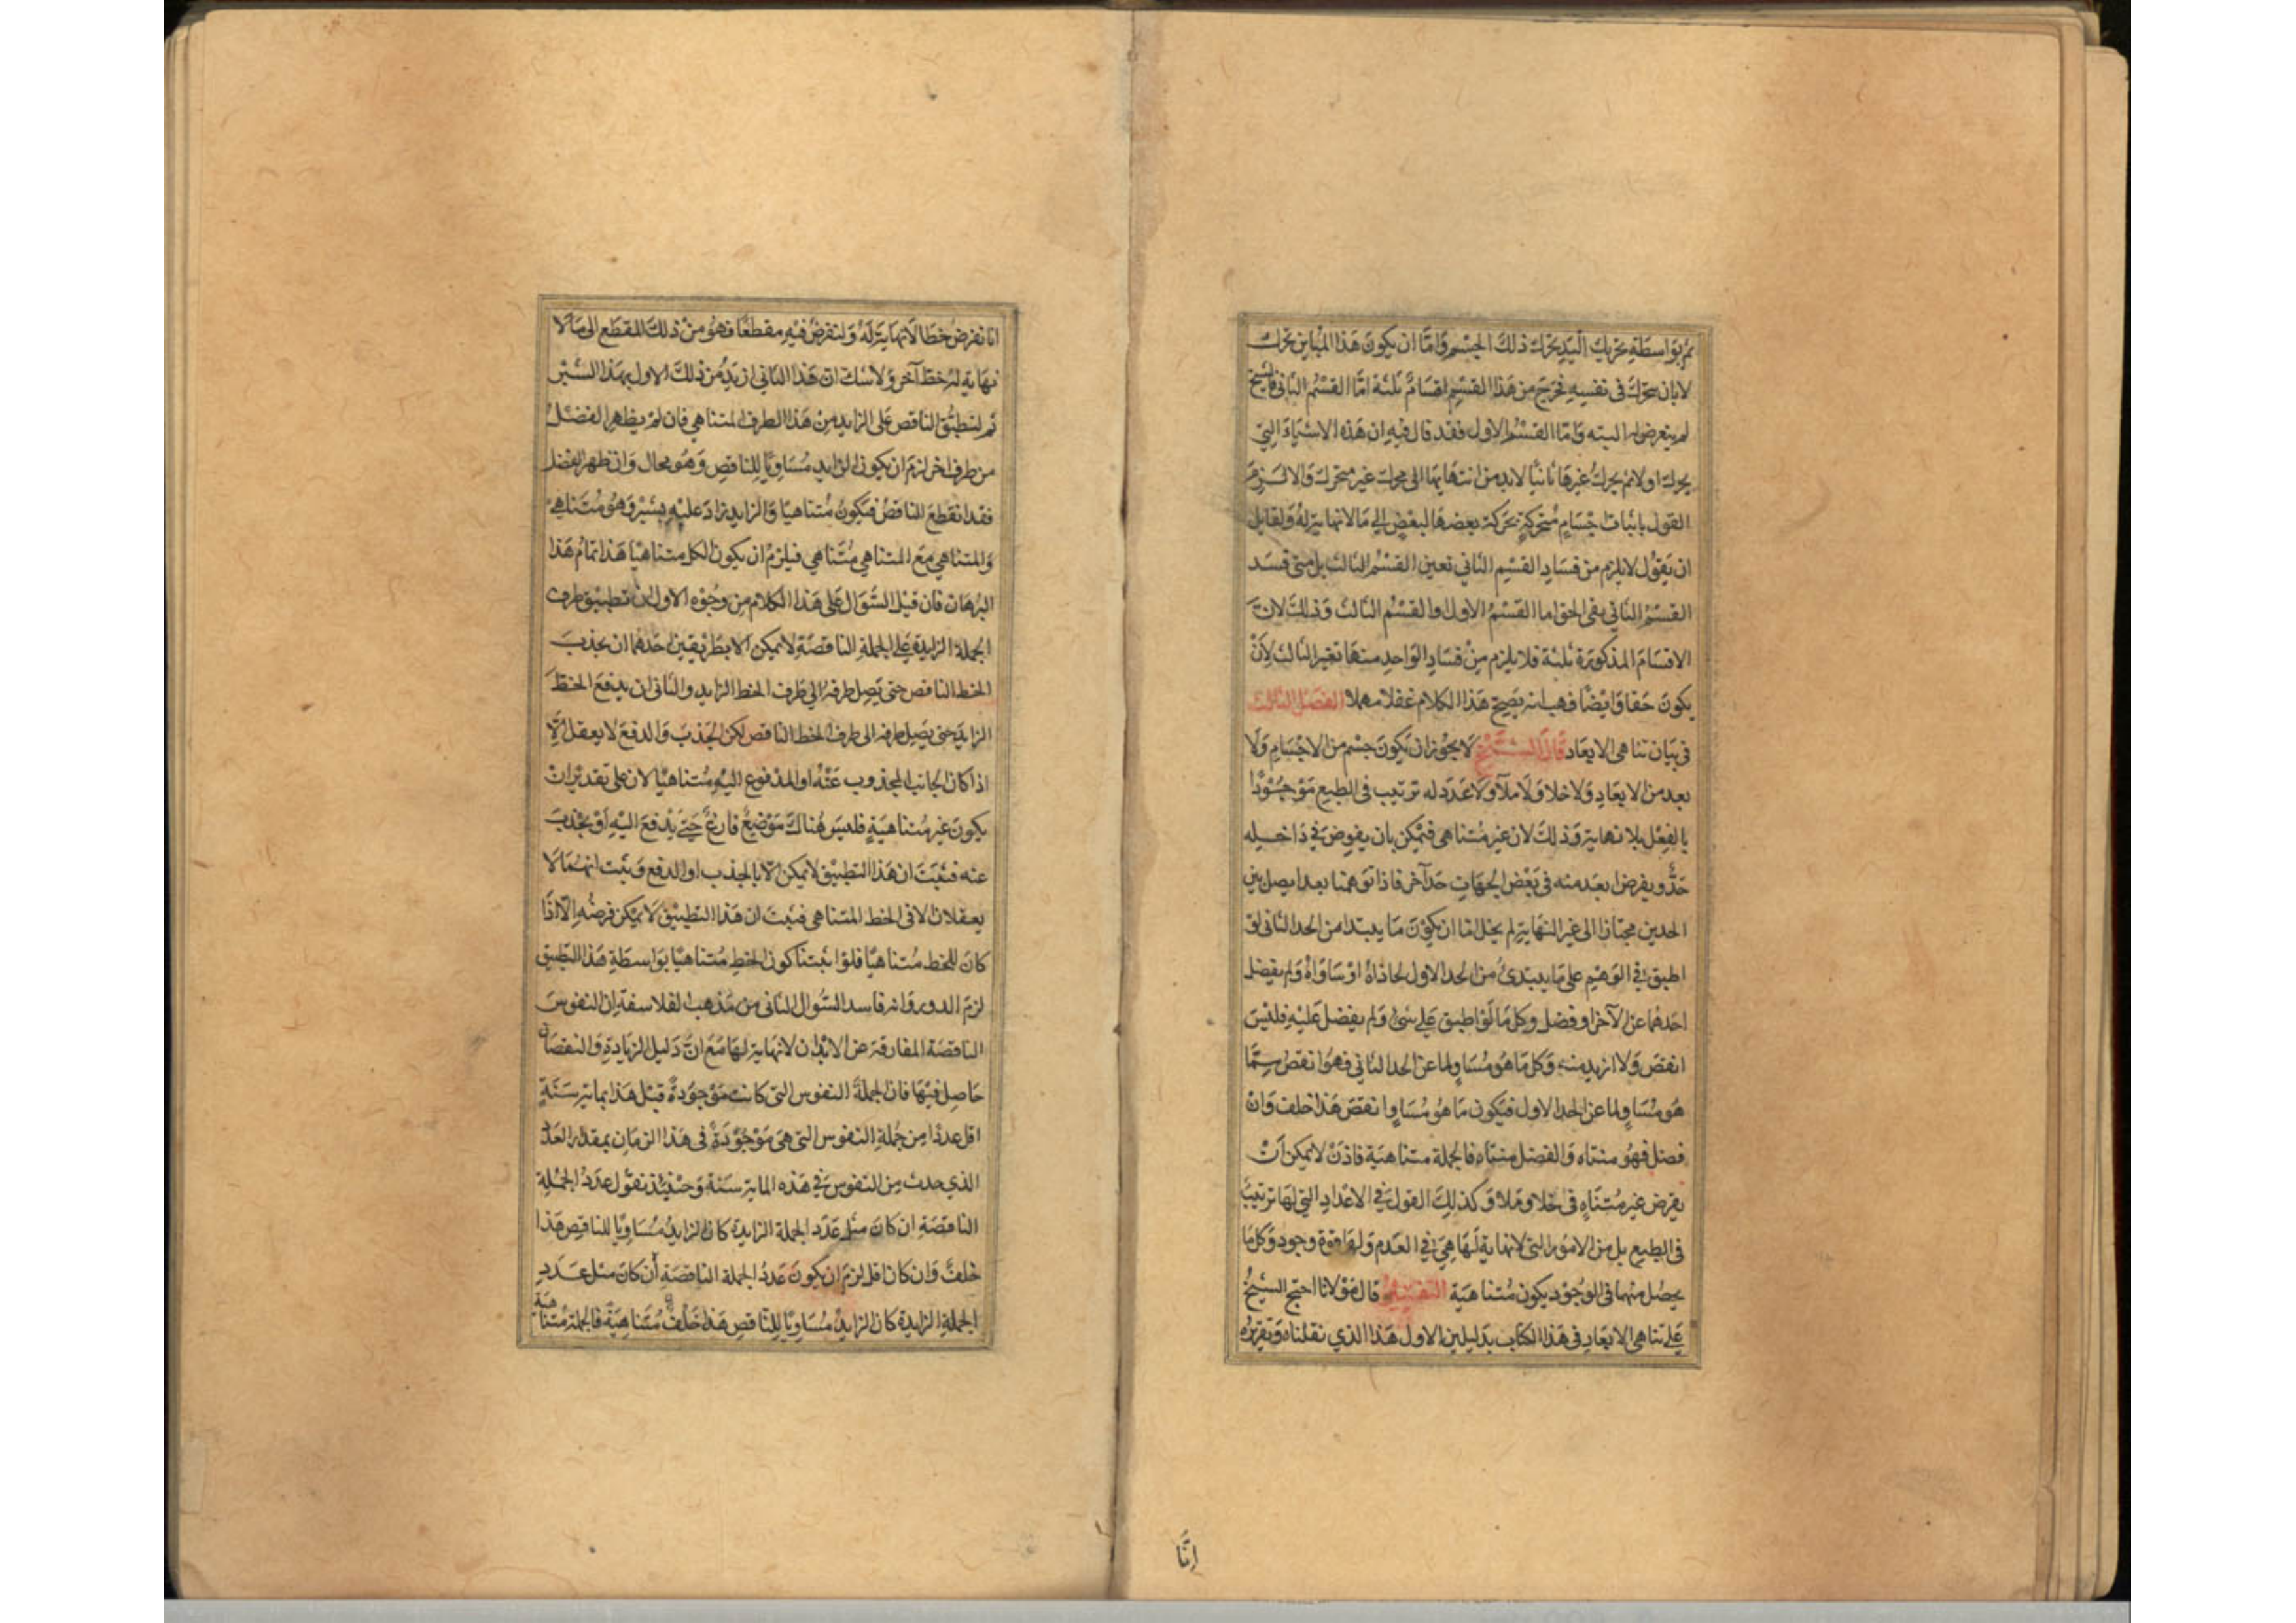 ثم بواسطة تحريك اليد يحرك ذلك الجسم واما ان يكون هذا المباين تحرك
لا بان يتحرك في نفسه فخرج من هذا القسم اقسام ثلثة امّا القسم الثاني فالشيخ
لم يتعرض له البته وامّا القسم الاول فقد قال فيه ان هذه الاشياء التي
يحرك اولا ثم يحرك غيرها ثانيا لا بد من انتهايها الى محرك غير متحرك والا لزم
القول باثبات اجسام متحركة بحركة بعضها لبعض الى ما لا نهاية له ولقايل
ان يقول لا يلزم من فساد القسم الثاني تعين القسم الثالث بل متى فسد
القسم الثاني بقى الحق اما القسم الاول والقسم الثالث وذلك لان
الاقسام المذكورة ثلثة فلا يلزم من فساد الواحد منها تعين الثالث لأن
يكون حقا وايضا فهب انه يصح هذا الكلام غفلا مهملا الفصل الثالث
في بيان تناهى الابعاد قال الشيخ لا يجوز ان يكون جسم من الاجسام ولا
بعد من الابعاد ولا خلا ولا ملآ ولا عدد له ترتيب في الطبع موجودا
بالفعل بلا نهاية وذلك لان غير متناهى فيمكن بان يفرض في داخله
حدّ ويفرض ابعد منه في بعض الجهات حد آخر فاذا توهمنا بعدا يصل بين
الحدين مجتازا الى غير النهاية لم يخل اما ان يكون ما يبتدا من الحد الثاني لو
اطبق في الوهم على ما يبتدئ من الحد الاول لحاذاه او ساواه ولم يفضل
احدهما عن الآخر او فضل وكل ما لو اطبق على شئ ولم يفضل عليه فليس
انقص ولا ازيد منه وكل ما هو مساو لما عن الحد الثاني فهو انقص ممّا
هو مساو لما عن الحد الاول فيكون ما هو مساوا نقص هذا خلف وان
فضل فهو متناه والفضل متناه فالجملة متناهية فاذن لا يمكن ان
يفرض غير متناه في خلا وملا وكذلك القول في الاعداد التي لها ترتيب
في الطبع بل من الامور التي لا نهاية لها هي في العدم ولها قوة وجود وكل ما
يحصل منها في الوجود يكون متناهية التفسير قال مولانا احتج الشيخ
على تناهى الابعاد في هذا الكتاب بدليلين الاول هذا الذي نقلناه وتقريره
انّا
انا نفرض خطا لا نهاية له ولنفرض فيه مقطعا فهو من ذلك المقطع الى ما لا
نهاية له خط آخر ولا شك ان هذا الثاني ازيد من ذلك الاول بهذا الشبر
ثم لنطبق الناقص على الزايد من هذا الطرف المتناهي فان لم يظهر الفضل
من طرف اخر لزم ان يكون الزايد مساويا للناقص وهو محال وان ظهر الفضل
فقد انقطع الناقص فيكون متناهيا والزايد زاد عليه بشبر وهو متناهي
والمتناهي مع المتناهي متناهي فيلزم ان يكون الكل متناهيا هذا تمام هذا
البرهان فان قيل السؤال على هذا الكلام من وجوه الاول ان تطبيق طرف
الجملة الزايدة على الجملة الناقصة لا يمكن الا بطريقين احدهما ان يجذب
الخط الناقص حتى يصل طرفه الى طرف الخط الزايد والثاني ان يدفع الخط
الزايد حتى يصل طرفه الى طرف الخط الناقص لكن الجذب والدفع لا يعقل الا
اذا كان الجانب المجذوب عنه او المدفوع اليه متناهيا لان على تقدير ان
يكون غير متناهية فليس هناك موضع فارغ حتى يدفع اليه او يجذب
عنه فثبت ان هذا التطبيق لا يمكن الا بالجذب او الدفع وثبت انهما لا
يعقلان الا في الخط المتناهي فثبت ان هذا التطبيق لا يمكن فرضه الّا اذا
كان الخط متناهيا فلو اثبتنا كون الخط متناهيا بواسطة هذا التطبيق
لزم الدور وانه فاسد السؤال الثاني من مذهب الفلاسفة ان النفوس
الناقصة المفارقة عن الابدان لا نهاية لها مع ان دليل الزيادة والنقصان
حاصل فيها فان الجملة النفوس التي كانت موجودة قبل هذا بماية سنة
اقل عددا من جملة النفوس التي هى موجودة في هذا الزمان بمقدار العدد
الذي حدث من النفوس في هذه الماية سنة وحينئذ نقول عدد الجملة
الناقصة ان كان مثل عدد الجملة الزايدة كان الزايد مساويا للناقص هذا
خلف وان كان اقل لزم ان يكون عدد الجملة الناقصة أن كان مثل عدد
الجملة الزايدة كان الزايد مساويا للناقص هذا خلف متناهية فالجملة متناهية